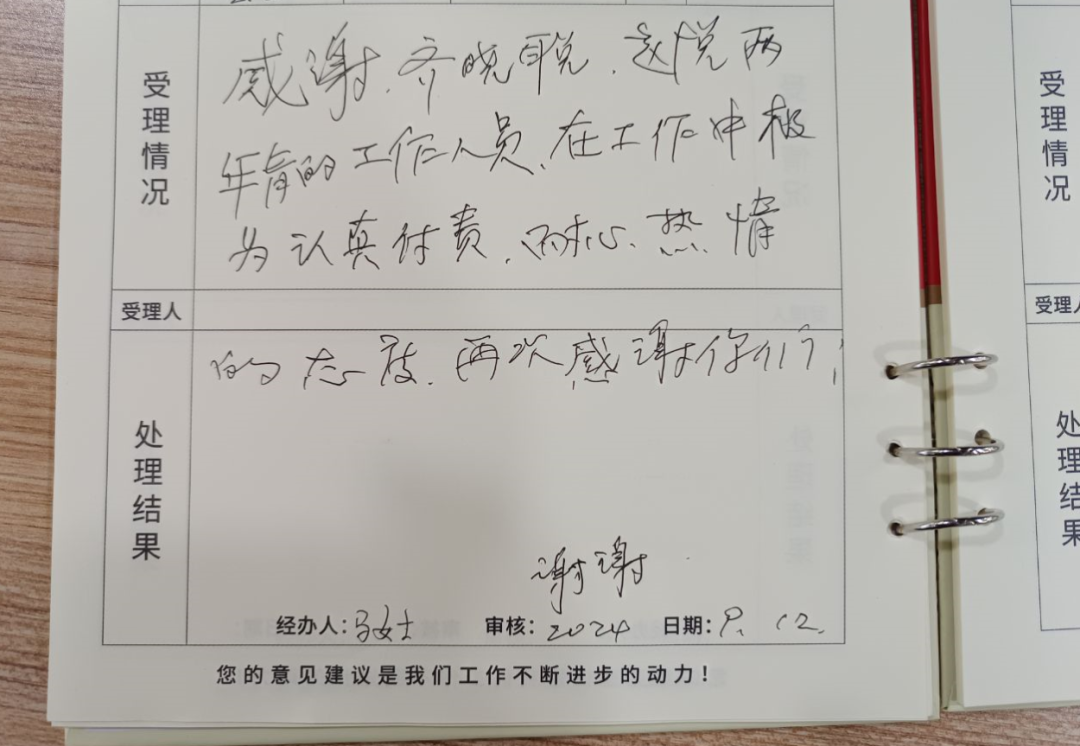 受理情况
感谢.齐晓聪、赵悦两
年青的工作人员、在工作中极
为认真付责、耐心、热情
受理人
的态度.再次感谢你们!
处理结果
谢谢
经办人:马女士 审核:2024 日期:8. 12.
您的意见建议是我们工作不断进步的动力!
受理情况
受理人
处理结果